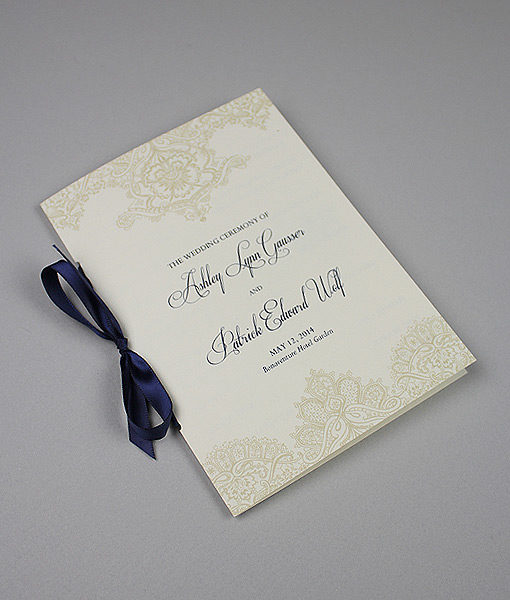 THE WEDDING CEREMONY OF
Ashley Lynn Gausser
AND
Patrick Edward Wolf
MAY 12, 2014
Bonaventure Hotel Garden